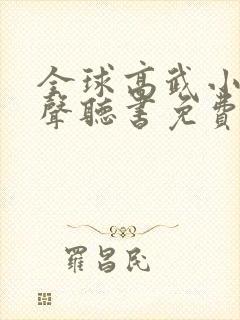 全球高武小
聲聽書免費
羅昌民